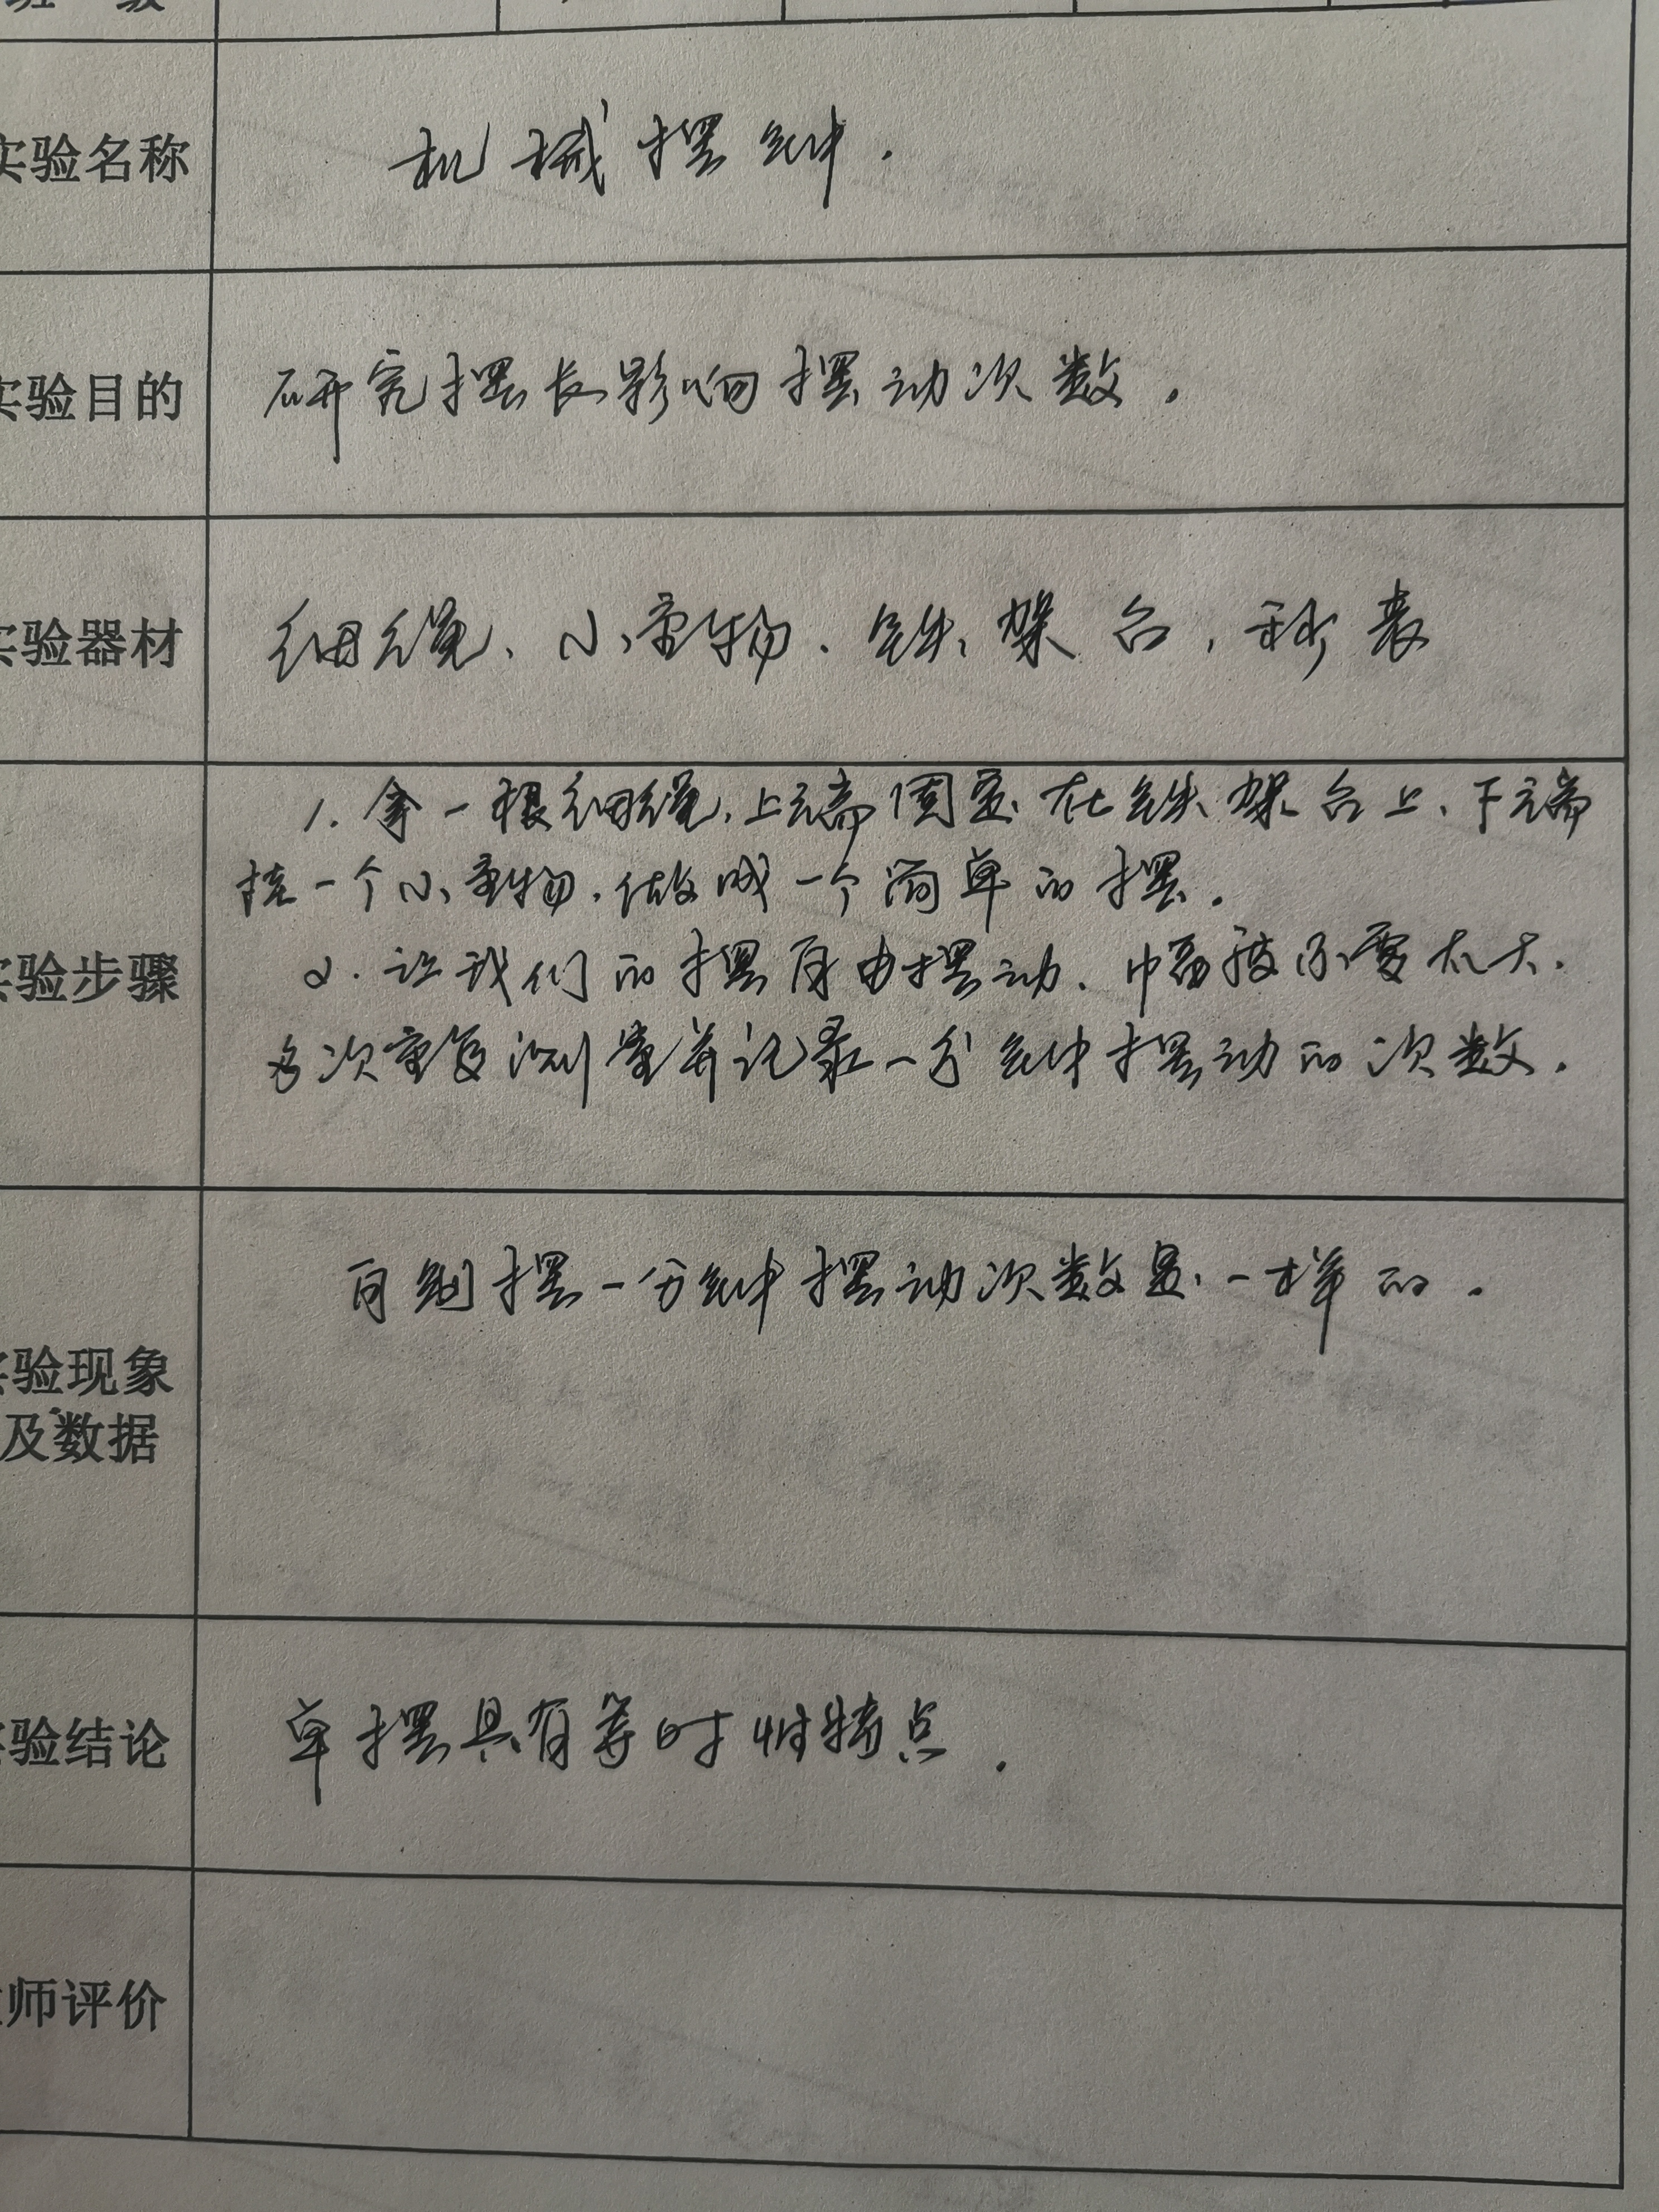 班 级
实验名称 机械摆钟.
实验目的 研究摆长影响摆动次数.
实验器材 细绳、小重物、铁架台,秒表
1. 拿一根细绳,上端固定在铁架台上、下端
挂一个小重物,做成一个简单的摆.
实验步骤 2. 让我们的摆自由摆动、幅度不要太大.
多次重复测量并记录一分钟摆动的次数.
自制摆一分钟摆动次数是一样的.
实验现象
及数据
实验结论 单摆具有等时性特点.
师评价